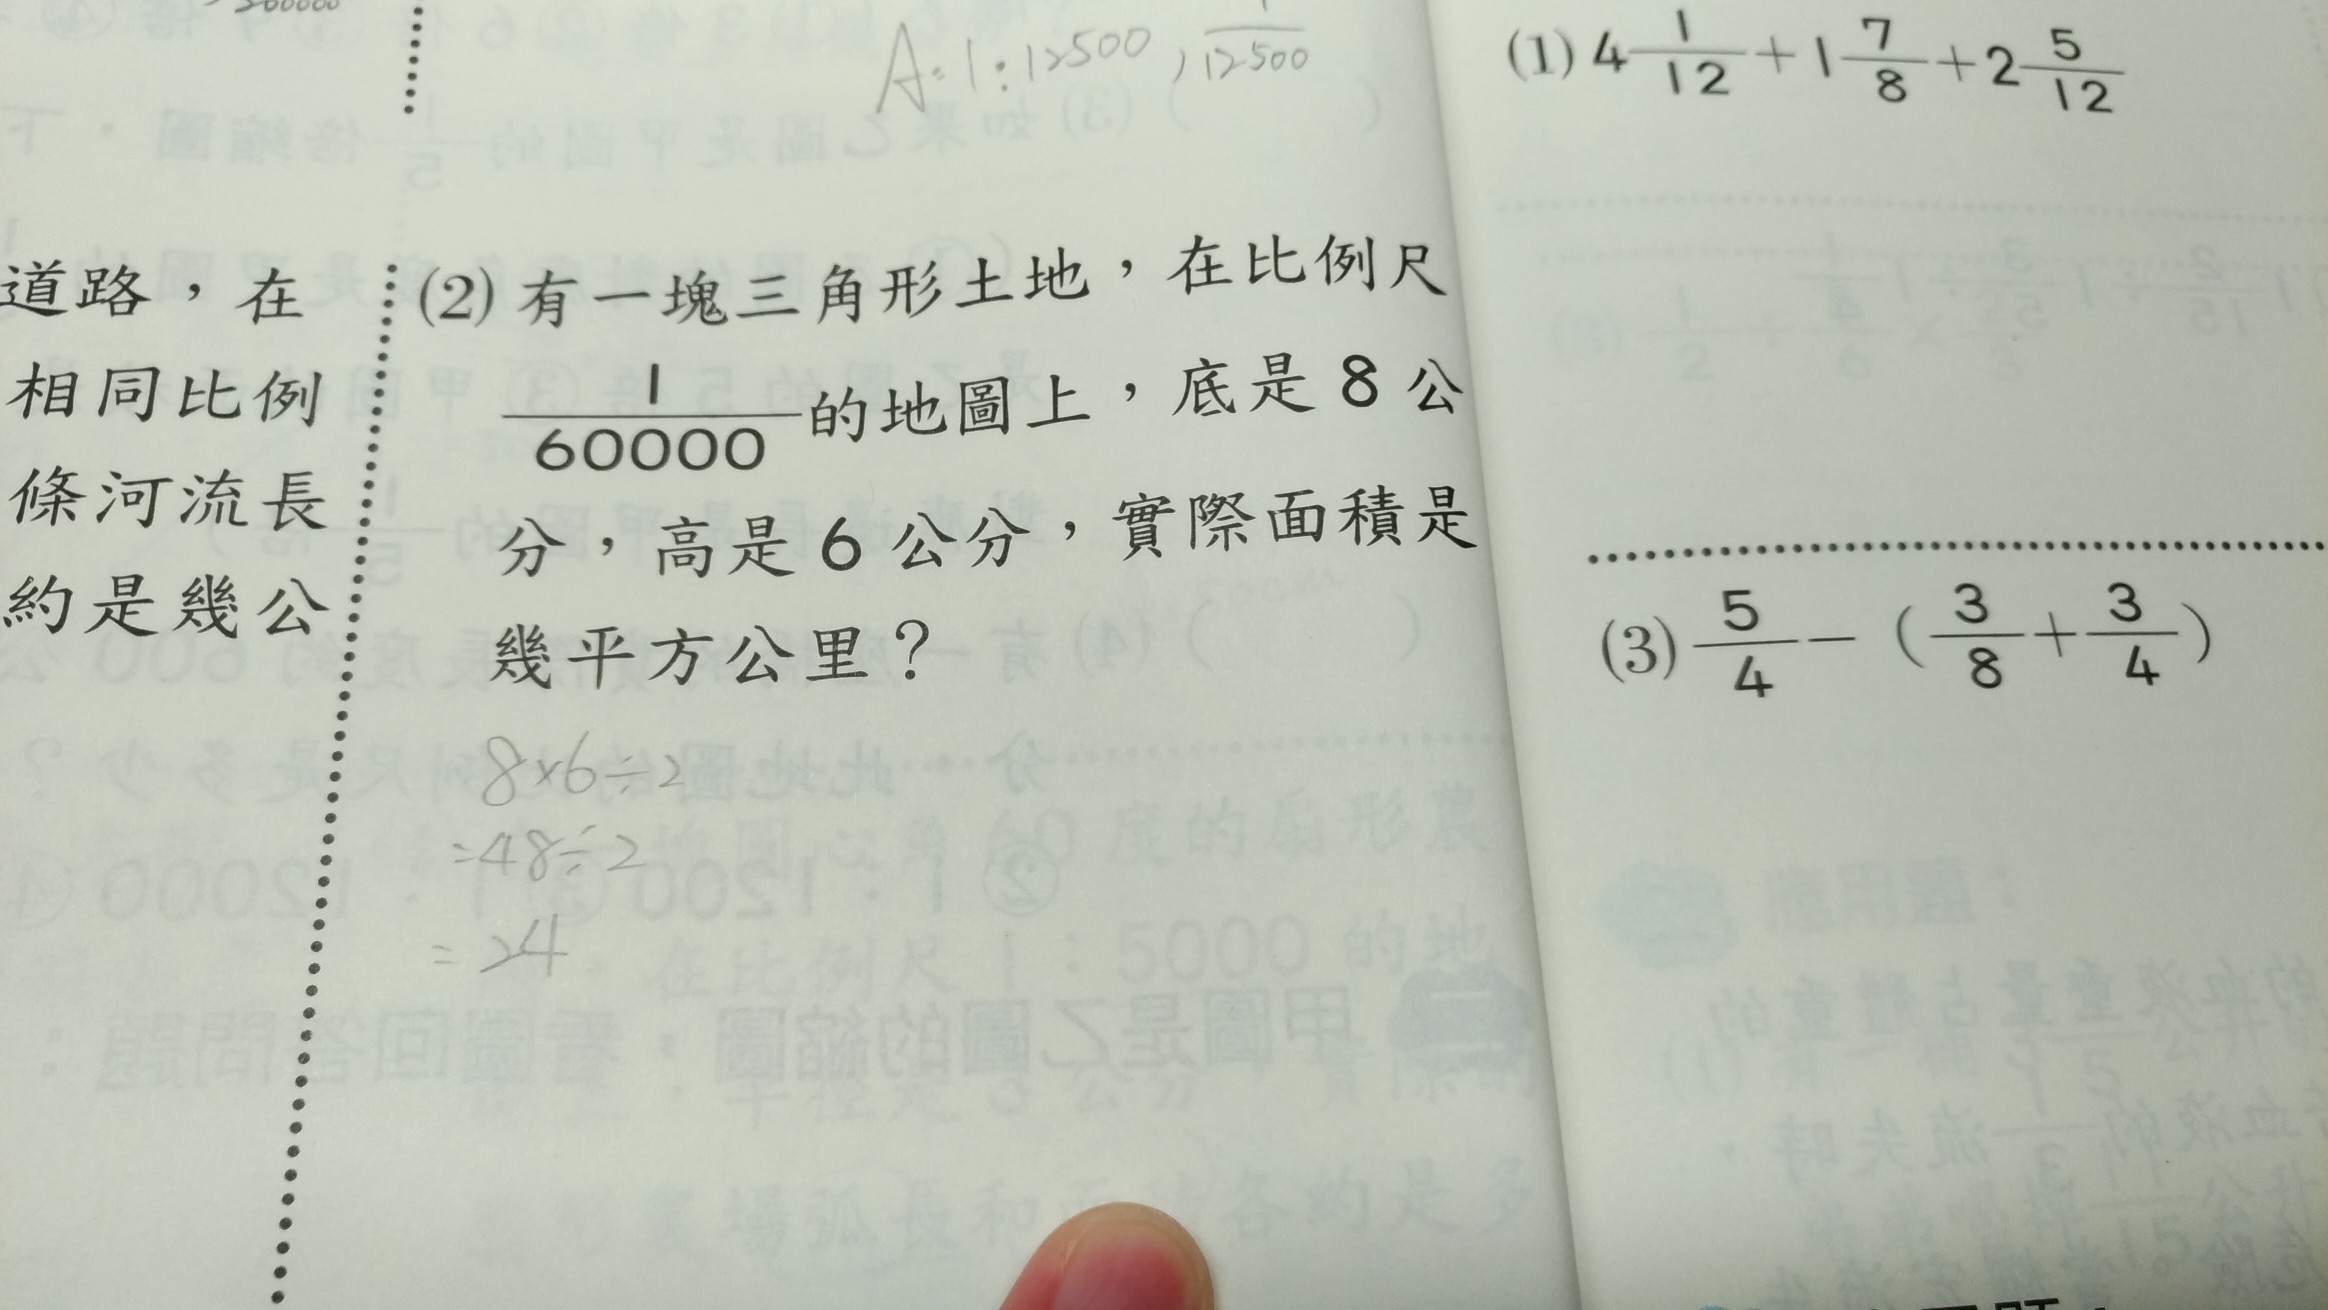 A:1:12500,1/12500
道路,在
相同比例
條河流長
約是幾公
(2)有一塊三角形土地,在比例尺
1/60000的地圖上,底是8公
分,高是6公分,實際面積是
幾平方公里?
8×6÷2
=48÷2
=24
(1)4 1/12+1 7/8+2 5/12
(3)5/4-(3/8+3/4)